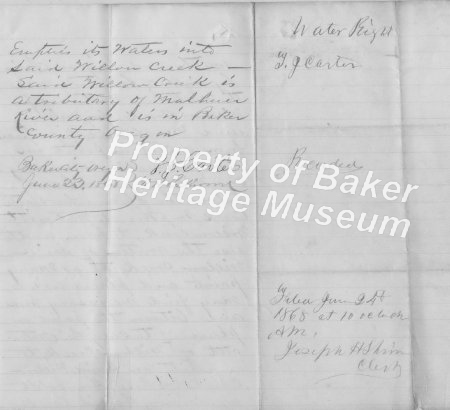 Empties its Waters into
Said Willow Creek —
Said Willow Creek is
a tributary of Malheur
river and is in Baker
County Oregon
Baker City Oregon
June 23, 18
Water Right
T. J Carter
Recorded
Filed June 24
1868 at 10 oclock
A.M.
Joseph H Shinn
Clerk
Property of Baker
Heritage Museum